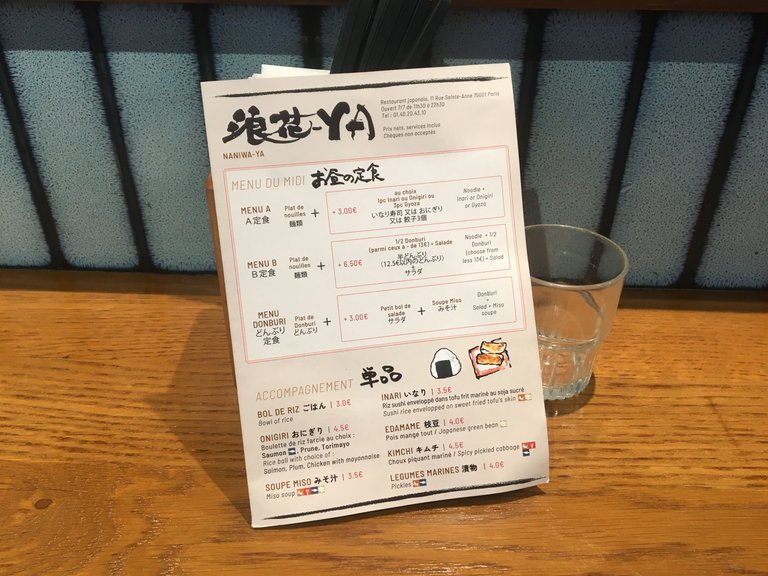 浪花-YA
NANIWA-YA
Restaurant japonais, 11 Rue Sainte-Anne 75001 Paris
Ouvert 7/7 de 11h30 à 22h30
Tel : 01.40.20.43.10
Prix nets, services inclus
Chèques non acceptés
MENU DU MIDI お昼の定食
MENU A
A定食
Plat de
nouilles
麺類
+
+ 3.00€
au choix
1pc Inari ou Onigiri ou
3pc Gyoza
いなり寿司 又は おにぎり
又は 餃子3個
Noodle +
Inari or Onigiri
or Gyoza
MENU B
B定食
Plat de
nouilles
麺類
+
+ 6.50€
1/2 Donburi
(parmi ceux à - de 13€) + Salade
半どんぶり
(12.5€以内のどんぶり)
+
サラダ
Noodle + 1/2
Donburi
(choose from
less 13€) + Salad
MENU
DONBURI
どんぶり
定食
Plat de
Donburi
どんぶり
+
+ 3.00€
Petit bol de
salade
サラダ
+
Soupe Miso
みそ汁
Donburi
+
Salad + Miso
soupe
ACCOMPAGNEMENT 単品
BOL DE RIZ ごはん | 3.0€
Bowl of rice
ONIGIRI おにぎり | 4.5€
Boulette de riz farcie au choix :
Saumon, Prune, Torimayo
Rice ball with choice of :
Salmon, Plum, Chicken with mayonnaise
SOUPE MISO みそ汁 | 3.5€
Miso soup
INARI いなり | 3.5€
Riz sushi enveloppé dans tofu frit mariné au soja sucré
Sushi rice enveloped on sweet fried tofu's skin
EDAMAME 枝豆 | 4.0€
Pois mange tout / Japanese green bean
KIMCHI キムチ | 4.5€
Choux piquant mariné / Spicy pickled cabbage
LEGUMES MARINES 漬物 | 4.0€
Pickles